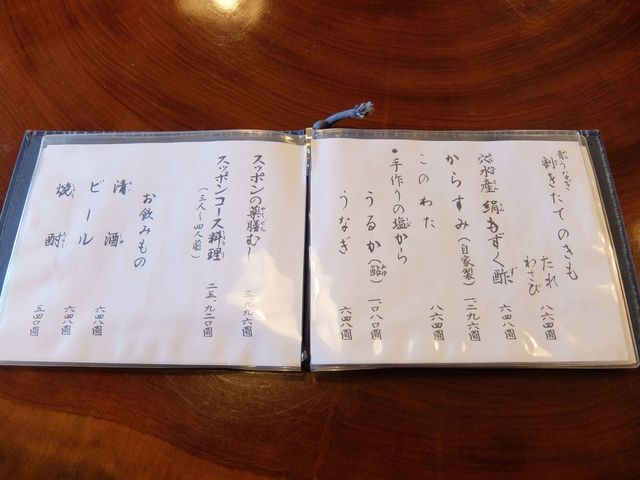 割きたてのきも
たれ
わさび
八六四圓
水産 絹もずく酢
六四八圓
からすみ(自家製)
一、二九六圓
このわた
八六四圓
●手作りの塩から
うるか(鮎)
一、〇八〇圓
うなぎ
六四八圓
スッポンの薬膳むし
三、九九六圓
スッポンコース料理
(三人〜四人前)
二五、九二〇圓
お飲みもの
清酒
六四八圓
ビール
六四八圓
焼酎
五四〇圓